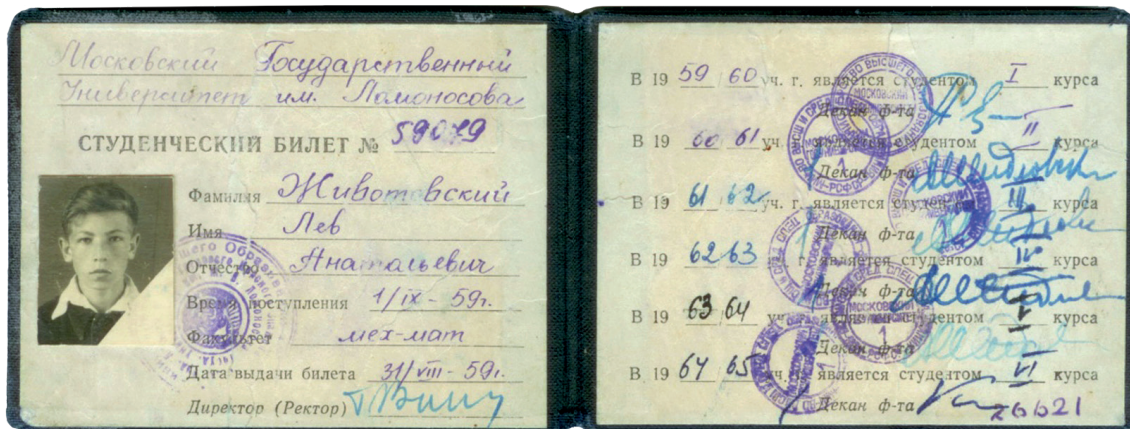 Московский Государственный
Университет им. Ломоносова
СТУДЕНЧЕСКИЙ БИЛЕТ № 59079
Фамилия Животовский
Имя Лев
Отчество Анатольевич
Время поступления 1/IX - 59г.
Факультет мех-мат
Дата выдачи билета 31/VIII - 59г.
Директор (Ректор)
В 19 59 60 уч. г. является студентом I курса
Декан ф-та
В 19 60 61 уч. г. является студентом II курса
Декан ф-та
В 19 61 62 уч. г. является студентом III курса
Декан ф-та
В 19 62 63 г. является студентом IV курса
Декан ф-та
В 19 63 64 уч. г. является студентом V курса
Декан ф-та
В 19 64 65 уч. г. является студентом VI курса
Декан ф-та
26621